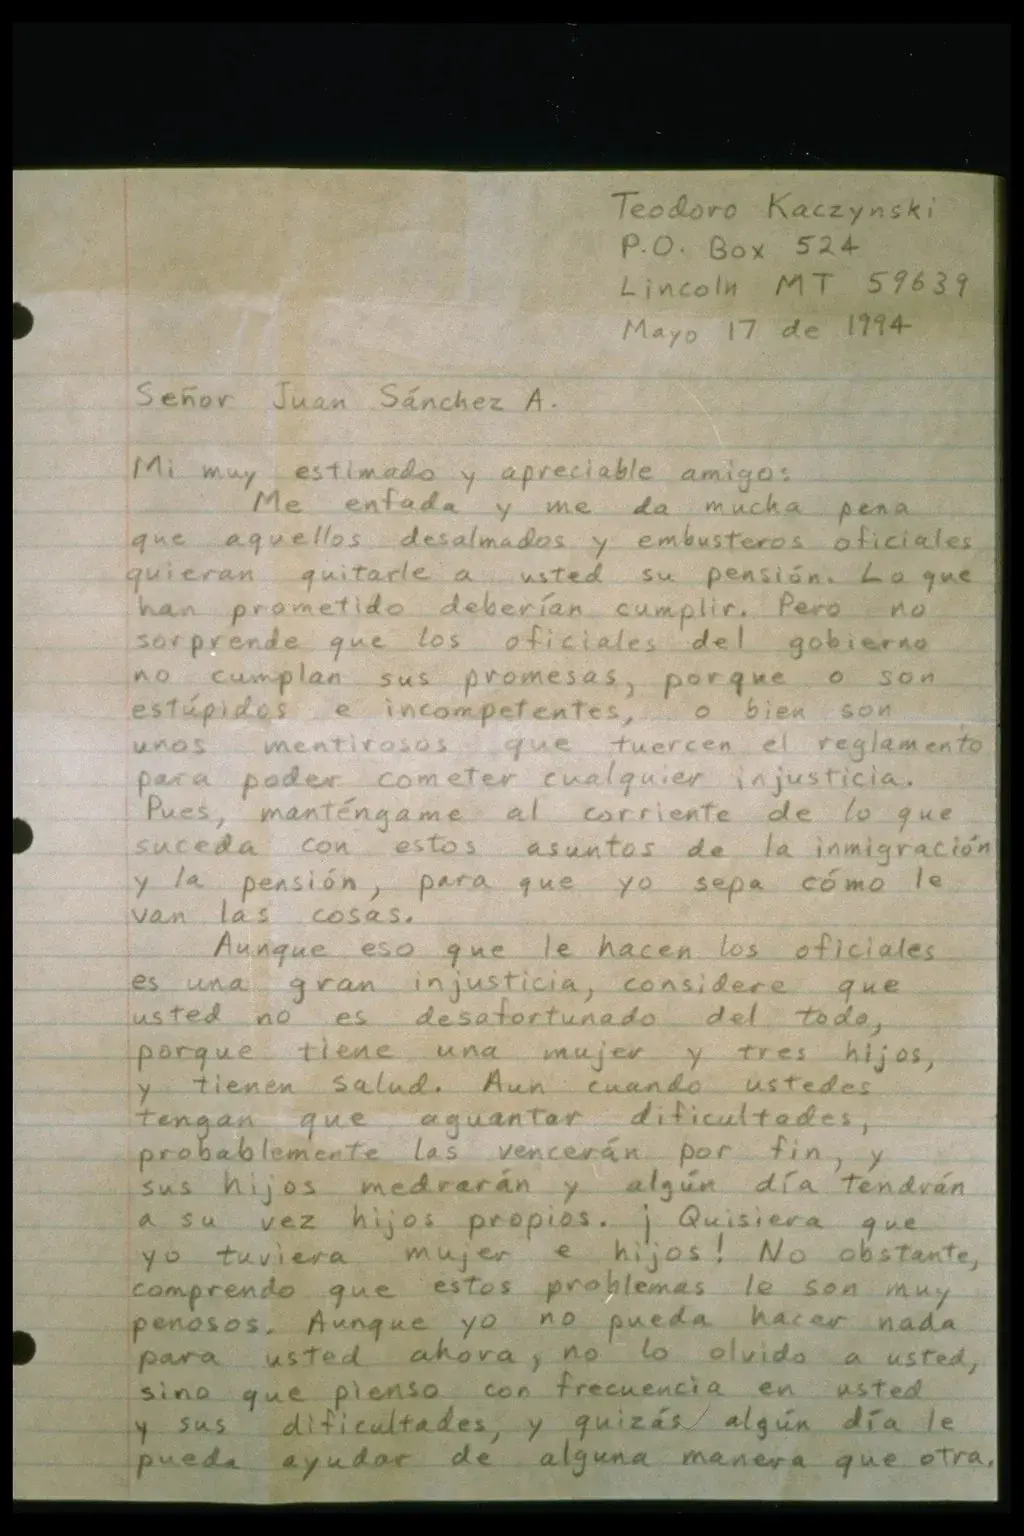 Teodoro Kaczynski
P.O. Box 524
Lincoln MT 59639
Mayo 17 de 1994
Señor Juan Sánchez A.
Mi muy estimado y apreciable amigo:
Me enfada y me da mucha pena
que aquellos desalmados y embusteros oficiales
quieran quitarle a usted su pensión. Lo que
han prometido deberían cumplir. Pero no
sorprende que los oficiales del gobierno
no cumplan sus promesas, porque o son
estúpidos e incompetentes, o bien son
unos mentirosos que tuercen el reglamento
para poder cometer cualquier injusticia.
Pues, manténgame al corriente de lo que
suceda con estos asuntos de la inmigración
y la pensión, para que yo sepa cómo le
van las cosas.
Aunque eso que le hacen los oficiales
es una gran injusticia, considere que
usted no es desafortunado del todo,
porque tiene una mujer y tres hijos,
y tienen salud. Aun cuando ustedes
tengan que aguantar dificultades,
probablemente las vencerán por fin, y
sus hijos medrarán y algún día tendrán
a su vez hijos propios. ¡Quisiera que
yo tuviera mujer e hijos! No obstante,
comprendo que estos problemas le son muy
penosos. Aunque yo no pueda hacer nada
para usted ahora, no lo olvido a usted,
sino que pienso con frecuencia en usted
y sus dificultades, y quizás algún día le
pueda ayudar de alguna manera que otra.